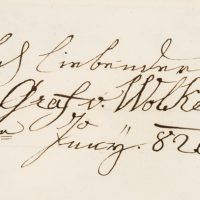 liebender
Graf v. Wolke
10
Juny. 82